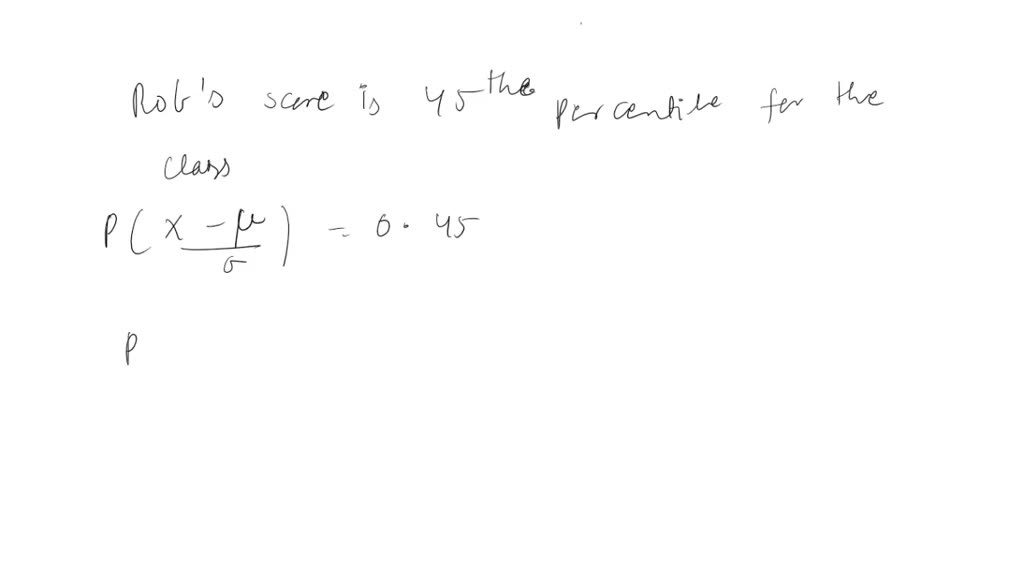 Rob's score is 45 the percentile for the
class
P( x - μ / σ ) = 0.45
P